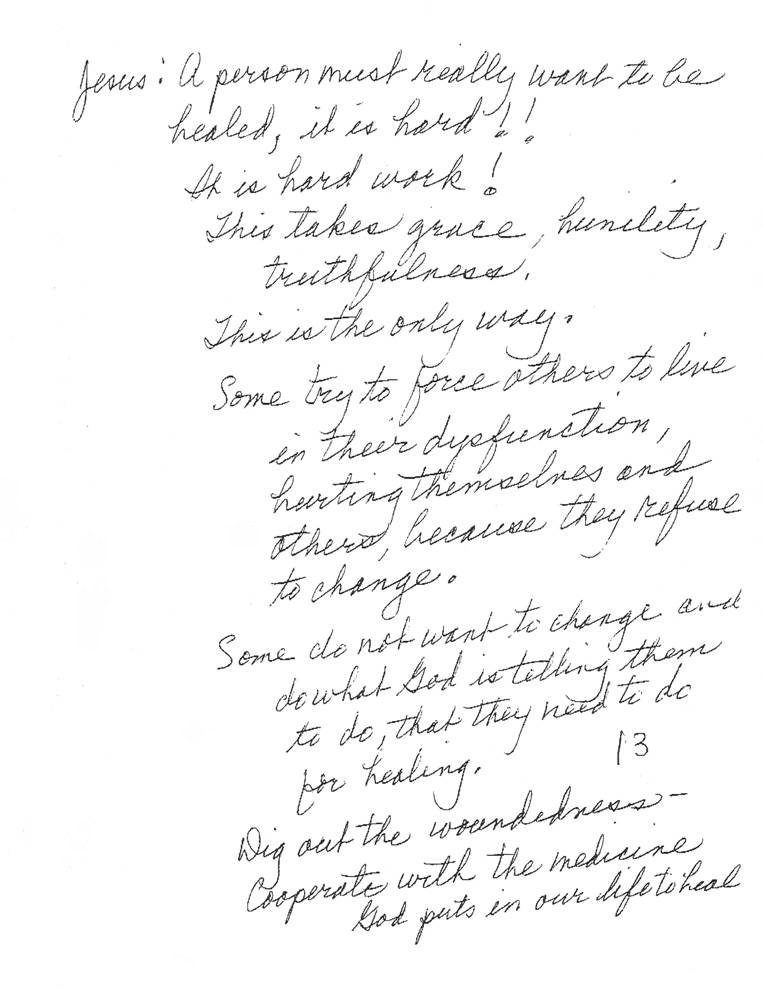 Jesus: A person must really want to be
healed, it is hard!!
It is hard work!
This takes grace, humility,
truthfulness.
This is the only way.
Some try to force others to live
in their dysfunction,
hurting themselves and
others, because they refuse
to change.
Some do not want to change and
do what God is telling them
to do, that they need to do
for healing.
13
Dig out the woundedness -
Cooperate with the medicine
God puts in our life to heal